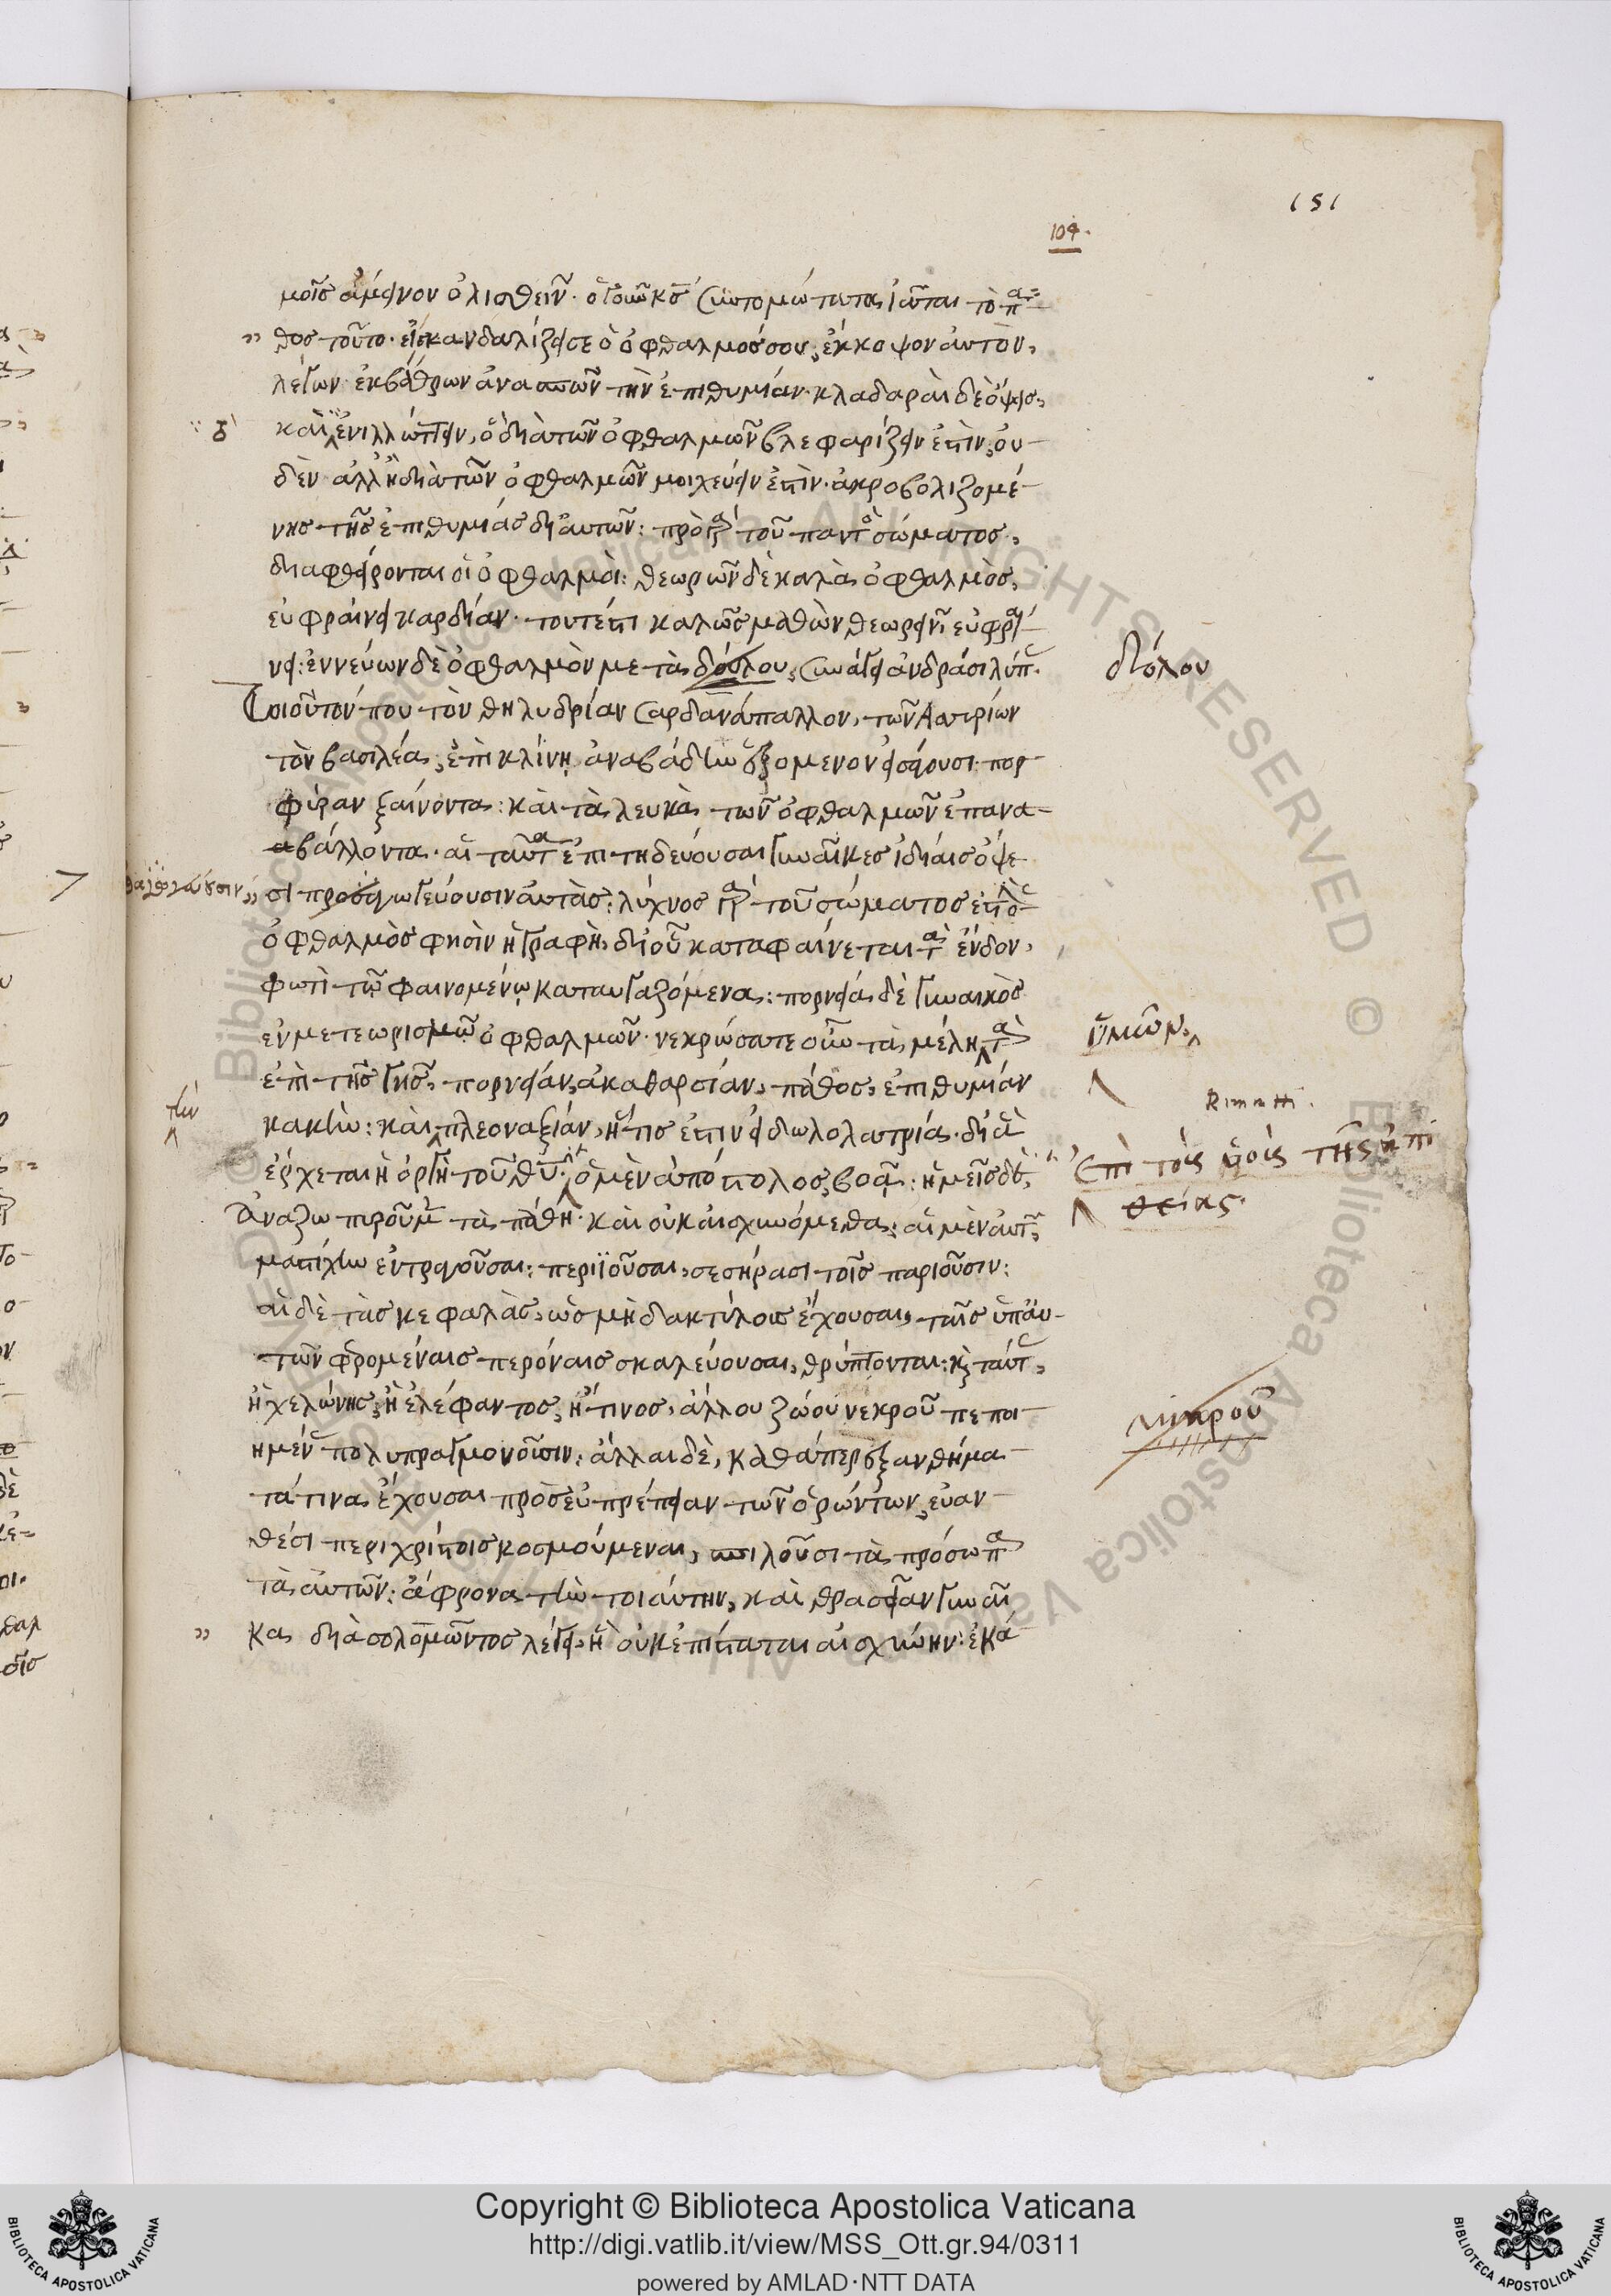 151
104.
μοῖς ἄμεινον ὀλισθεῖν· ὁ γοῦν κς συντομώτατα ἰᾶται τὸ πα=
θος τοῦτο· εἰ σκανδαλίζει σε ὁ ὀφθαλμός σου, ἔκκοψον αὐτὸν,
λέγων· ἐκ βάθρων ἀνασπῶν τὴν ἐπιθυμίαν· κλαδαραὶ δὲ ὄψεις,
καὶ ἐνιλλώπτειν, ὃ διὰ τῶν ὀφθαλμῶν βλεφαρίζειν ἐστὶν, οὐ-
δὲν ἀλλ' ἢ διὰ τῶν ὀφθαλμῶν μοιχεύειν ἐστὶν· ἀκροβολιζομέ-
νης τῆς ἐπιθυμίας δι' αὐτῶν: πρὸ γὰρ τοῦ παντὸς σώματος,
διαφθείρονται οἱ ὀφθαλμοὶ: θεωρῶν δὲ καλὰ ὀφθαλμὸς,
εὐφραίνει καρδίαν· τουτέστι καλῶς μαθὼν θεωρεῖν εὐφραί-
νει: ἐννεύων δὲ ὀφθαλμὸν μετὰ δούλου, συνάγει ἀνδράσι λύπας.
δόλου
Τοιοῦτόν που τὸν θηλυδρίαν Σαρδανάπαλλον, τῶν Ἀσυρίων
τὸν βασιλέα, ἐπὶ κλίνῃ ἀναβάδην ἑζόμενον εἰσάγουσι πορ-
φύραν ξαίνοντα: καὶ τὰ λευκὰ τῶν ὀφθαλμῶν ἐπανα-
βάλλοντα· αἱ ταῦτα ἐπιτηδεύουσαι γυναῖκες ἰδίαις ὄψε-
σι προαγωγεύουσιν αὐτὰς: λύχνος γὰρ τοῦ σώματος ἐστὶν ὁ
ὀφθαλμὸς φησὶν ἡ γραφὴ, δι' οὗ καταφαίνεται τὰ ἔνδον,
φωτὶ τῷ φαινομένῳ καταυγαζόμενα: πορνεία δὲ γυναικὸς
ἐν μετεωρισμῷ ὀφθαλμῶν· νεκρώσατε οὖν τὰ μέλη τὰ
ὑμῶν,
ἐπὶ τῆς γῆς, πορνείαν, ἀκαθαρσίαν, πάθος, ἐπιθυμίαν
τὴν
κακὴν: καὶ πλεονεξίαν, ἥτις ἐστὶν εἰδωλολατρία· δι' ἃ
ἔρχεται ἡ ὀργὴ τοῦ θυ· ὁ μὲν ἀπόστολος, βοᾷ: ἡμεῖς δὲ,
ἐπὶ τοὺς υἱοὺς τῆς ἀπει
θείας·
ἀναζωπυροῦμεν τὰ πάθη· καὶ οὐκ αἰσχυνόμεθα: αἱ μὲν αὐτῶν,
μαστίχην ἐντραγοῦσαι: περιϊοῦσαι, σεσήρασι τοῖς παριοῦσιν:
αἱ δὲ τὰς κεφαλὰς, ὡς μὴ δακτύλους ἔχουσαι, ταῖς ὑπ' αὐ-
τῶν φερομέναις περόναις σκαλεύουσαι, θρύπτονται: καὶ ταύτας,
ἢ χελώνης, ἢ ἐλέφαντος, ἤ τινος, ἄλλου ζώου νεκροῦ πεποι-
ημένας πολυπραγμονοῦσιν: ἄλλαι δὲ, καθάπερ ἐξανθήμα-
τά τινα ἔχουσαι πρὸς εὐπρέπειαν τῶν ὁρώντων, εὐαν-
θέσι περιχρίστοις κοσμούμεναι, σπιλοῦσι τὰ πρόσωπα
τὰ αὐτῶν: ἄφρονα τὴν τοιαύτην, καὶ θρασεῖαν γυναῖ
κα διὰ σολομῶντος λέγει, ἣ οὐκ ἐπίσταται αἰσχύνην: ἐκά
Copyright © Biblioteca Apostolica Vaticana
http://digi.vatlib.it/view/MSS_Ott.gr.94/0311
powered by AMLAD·NTT DATA